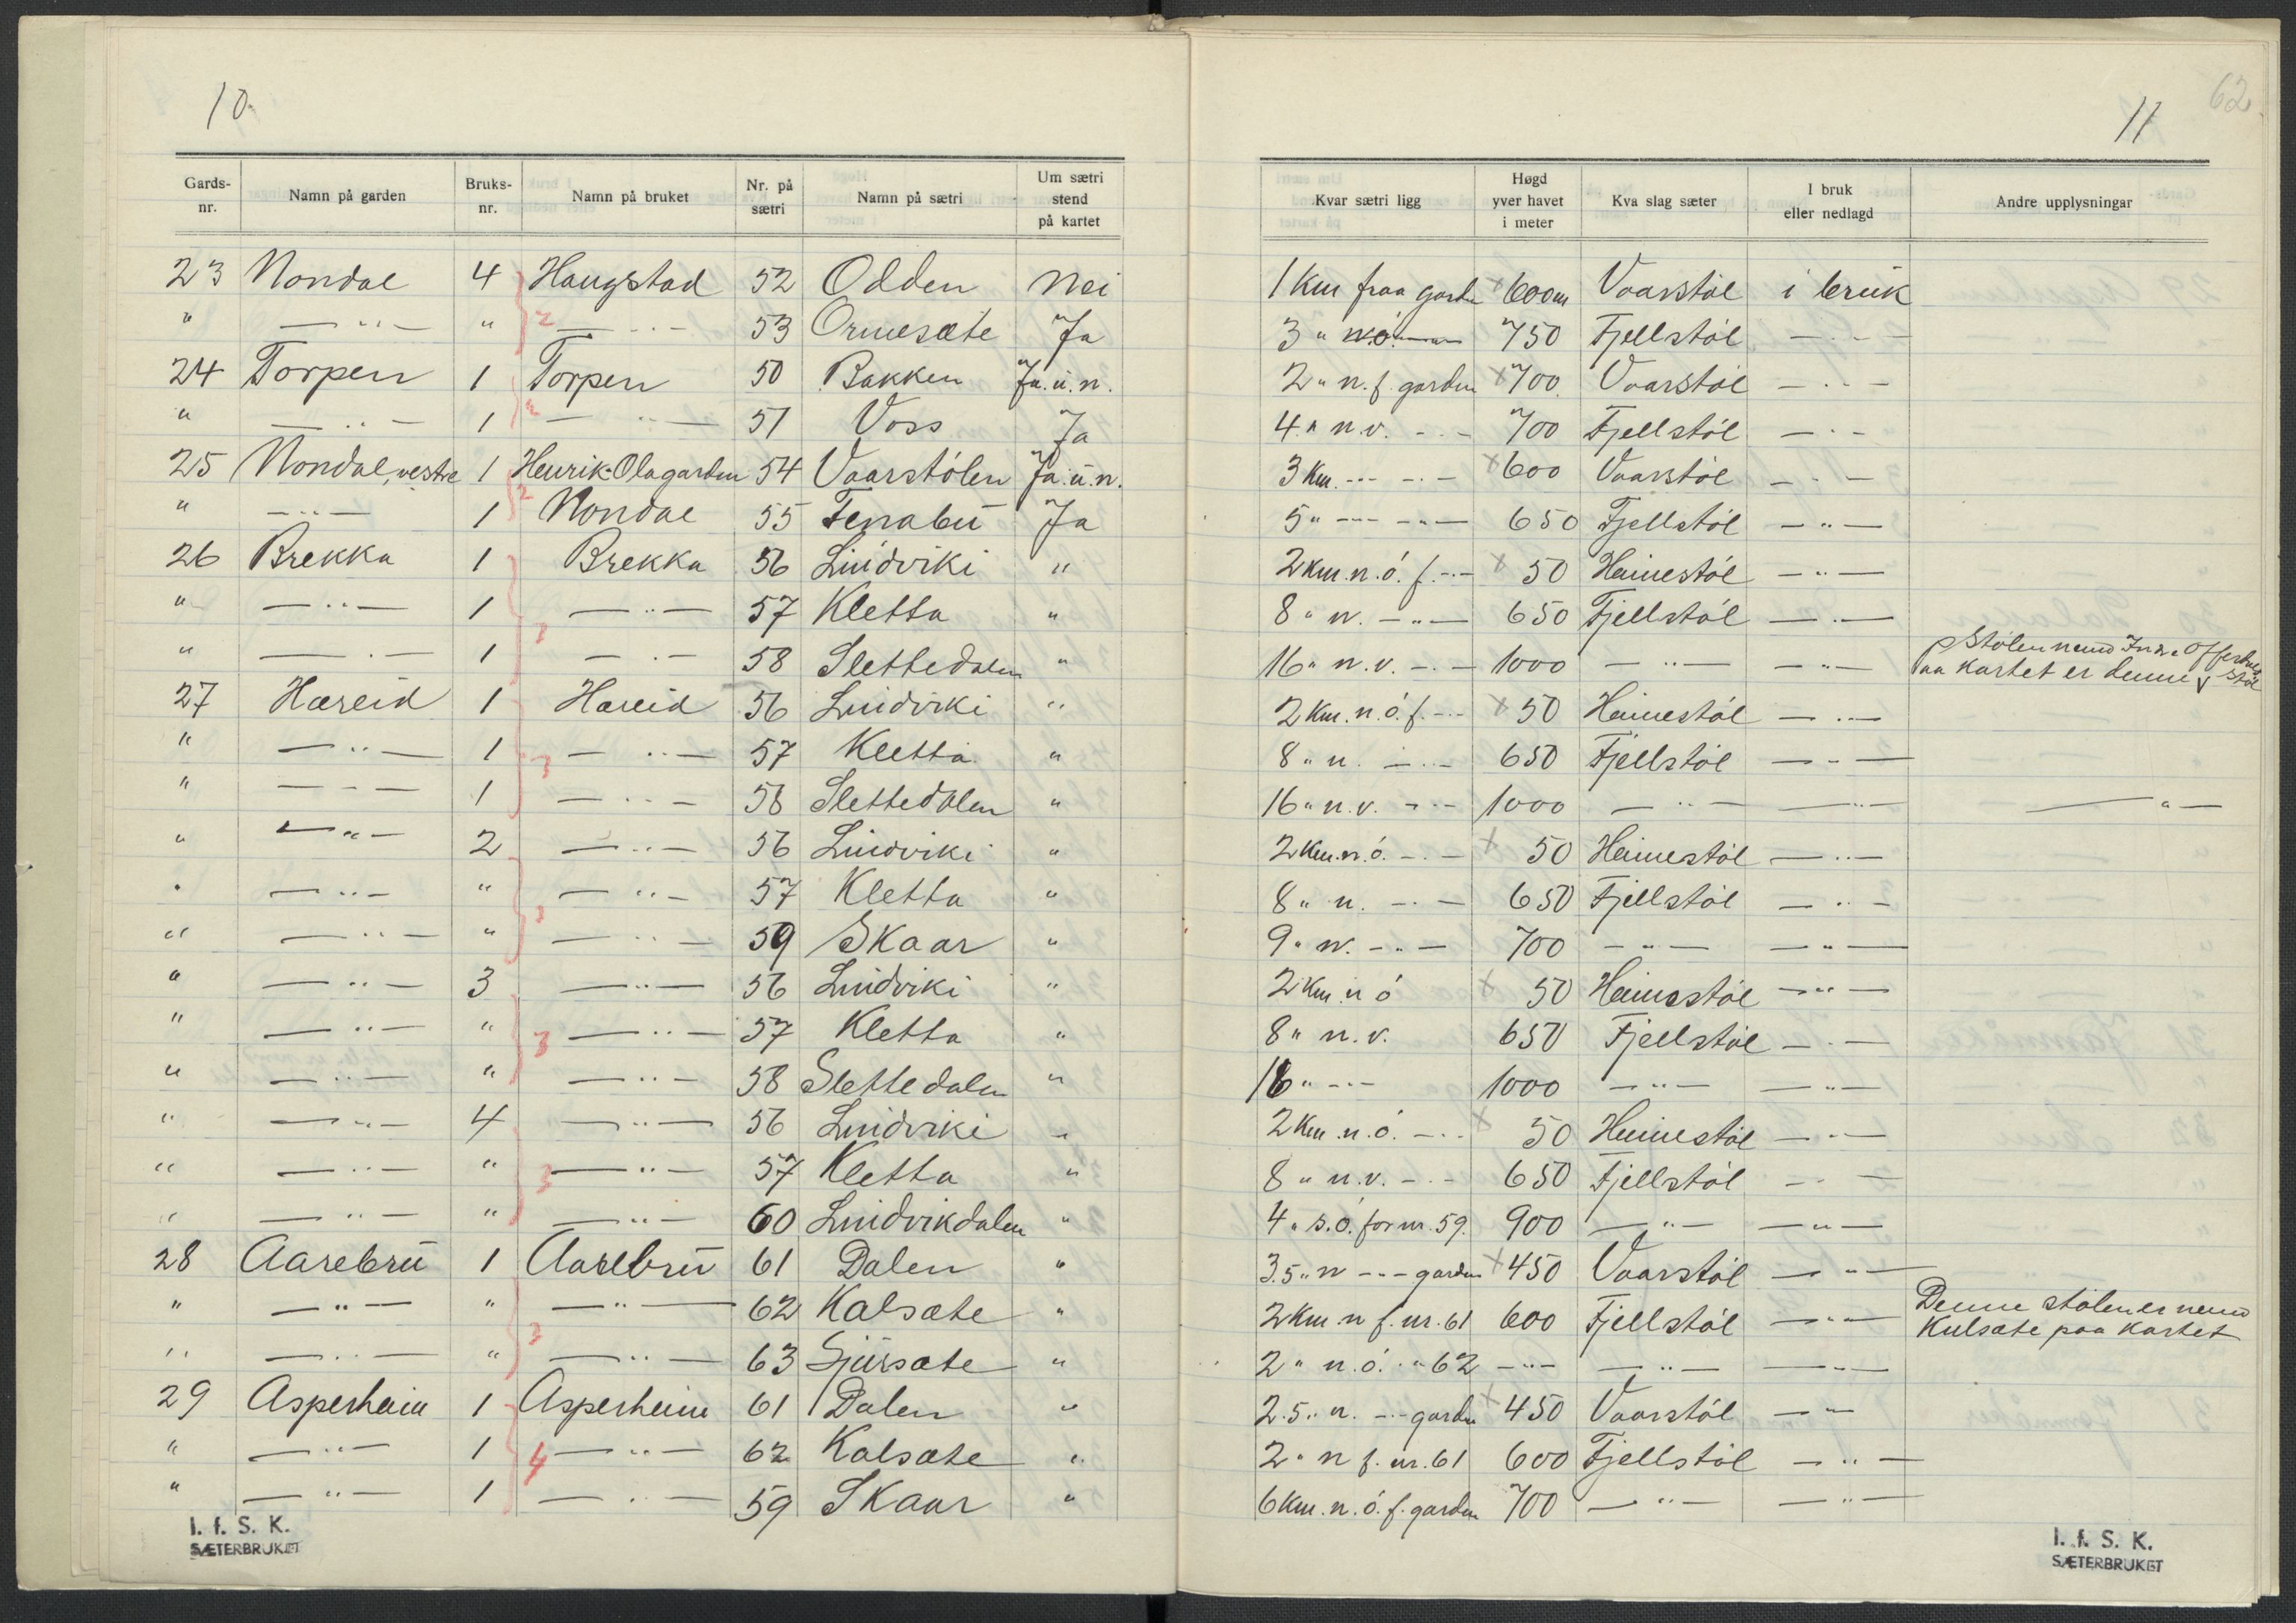 10
Gards-nr. Namn på garden Bruks-nr. Namn på bruket Nr. på sætri Namn på sætri Um sætri stend på kartet
23 Nondal 4 Haugstad 52 Odden Nei
" —"— " 2 —"— 53 Ormesæte Ja
24 Torpen 1 Torpen 50 Bakken Ja.u.n.
" —"— 1 2 —"— 51 Voss Ja
25 Nondal, vestre 1 Henrik-Olagarden 54 Vaarstólen Ja.u.n.
" —"— 1 2 Nondal 55 Tenabu Ja
26 Brekka 1 Brekka 56 Lindviki "
" —"— 1 3 —"— 57 Kletta "
" —"— 1 —"— 58 Slettedalen "
27 Hæreid 1 Hæreid 56 Lindviki "
" —"— 1 3 —"— 57 Kletta "
" —"— 1 —"— 58 Slettedalen "
" —"— 2 —"— 56 Lindviki "
" —"— " 3 —"— 57 Kletta "
" —"— " —"— 59 Skaar "
" —"— 3 —"— 56 Lindviki "
" —"— " 3 —"— 57 Kletta "
" —"— " —"— 58 Slettedalen "
" —"— 4 —"— 56 Lindviki "
" —"— " 3 —"— 57 Kletta "
" —"— " —"— 60 Lindvikdalen "
28 Aarebru 1 Aarebru 61 Dalen "
" —"— " 3 —"— 62 Kalsæte "
" —"— " —"— 63 Sjursæte "
29 Asperheim 1 Asperheim 61 Dalen "
" —"— 1 4 —"— 62 Kalsæte "
" —"— 1 —"— 59 Skaar "
I. f. S. K.
SÆTERBRUKET
62
11
Kvar sætri ligg Høgd yver havet i meter Kva slag sæter I bruk eller nedlagd Andre upplysningar
1 Km fraa garden x 600m Vaarstól i bruk
3 " n.ó. —"— 750 Fjellstól —"—
2 " n. f. garden x 700 Vaarstól —"—
4 " n.v. —"— 700 Fjellstól —"—
3 Km. —"— —"— x 600 Vaarstól —"—
5 " —"— —"— 650 Fjellstól —"—
2 Km. n.ó. f. —"— x 50 Heimestól —"—
8 " n. —"— 650 Fjellstól —"—
16 " n.v. —"— 1000 —"— —"— Stólen nemd Indre Offerdals stól
paa kartet er denne v
2 Km. n.ó. f. —"— x 50 Heimestól —"—
8 " n. —"— 650 Fjellstól —"—
16 " n.v. —"— 1000 —"— —"— —"—
2 Km. n.ó. —"— x 50 Heimestól —"—
8 " n. —"— 650 Fjellstól —"—
9 " n. —"— 700 —"— —"—
2 Km. n ó x 50 Heimestól —"—
8 " n.v. 650 Fjellstól —"—
16 " —"— 1000 —"— —"—
2 Km. n.ó. —"— x 50 Heimestól —"—
8 " n.v. —"— 650 Fjellstól —"—
4 " s.ó. for nr. 59. 900 —"— —"—
3.5 " n —"— garden x 450 Vaarstól —"—
2 Km. n f. nr. 61 600 Fjellstól —"— Denne stólen er nemd
Kulsæte paa kartet
2 " n.ó. " 62 —"— —"— —"—
2.5 " n. —"— garden x 450 Vaarstól —"—
2 " n f. nr. 61 600 Fjellstól —"—
6 Km. n.ó. f. garden 700 —"— —"—
I. f. S. K.
SÆTERBRUKET